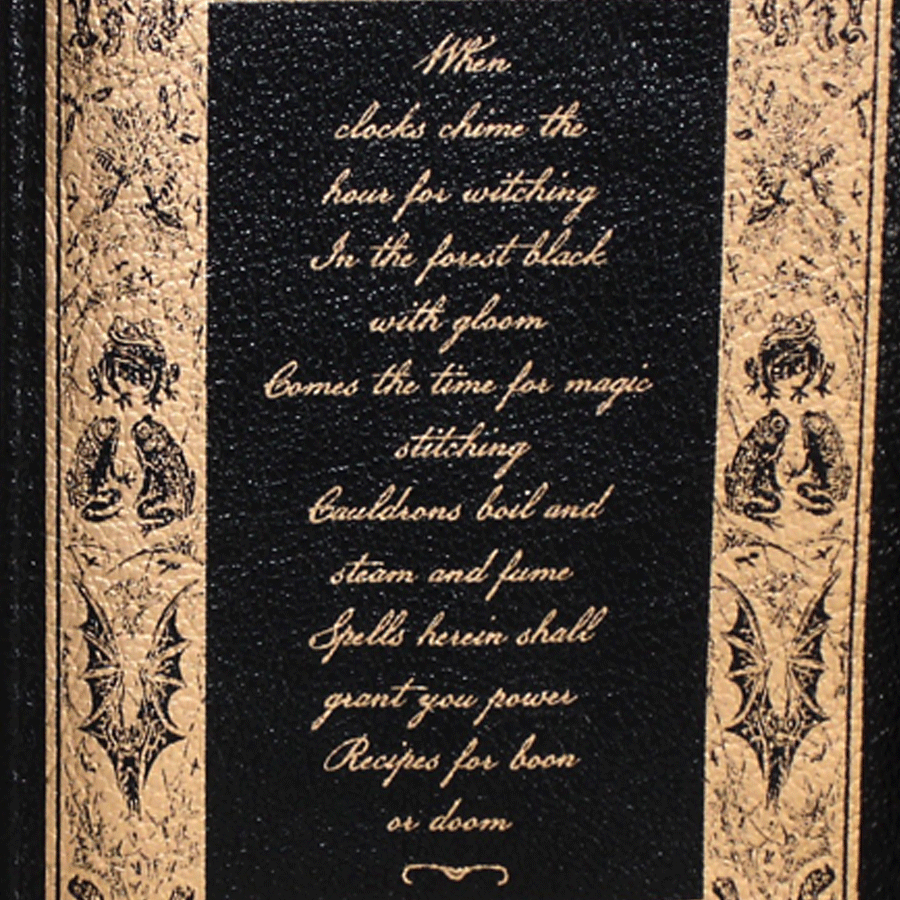 When
clocks chime the
hour for witching
In the forest black
with gloom
Comes the time for magic
stitching
Cauldrons boil and
steam and fume
Spells herein shall
grant you power
Recipes for boon
or doom